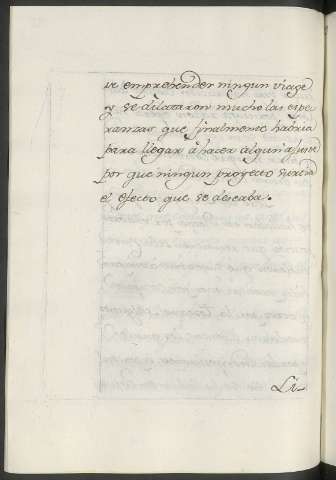 se emprehender ningun viage
y se dilataron mucho las espe
ranzas que finalmente habria
para llegar á hacer algun ajuste
por que ningun proyecto surtia
el efecto que se deseaba.
Li-